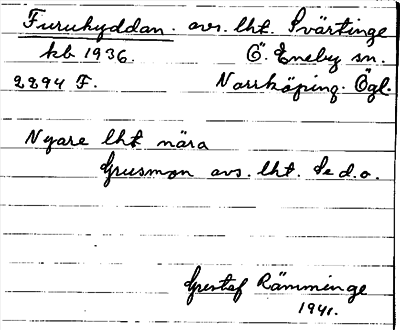 Furuhyddan. avs. lht. Svärtinge
kb 1936. Ö. Eneby sn.
2294 F. Norrköping. Ögl.
Nyare lht nära
Grusmon avs. lht. Se d.o.
Gustaf Rämminge
1941.